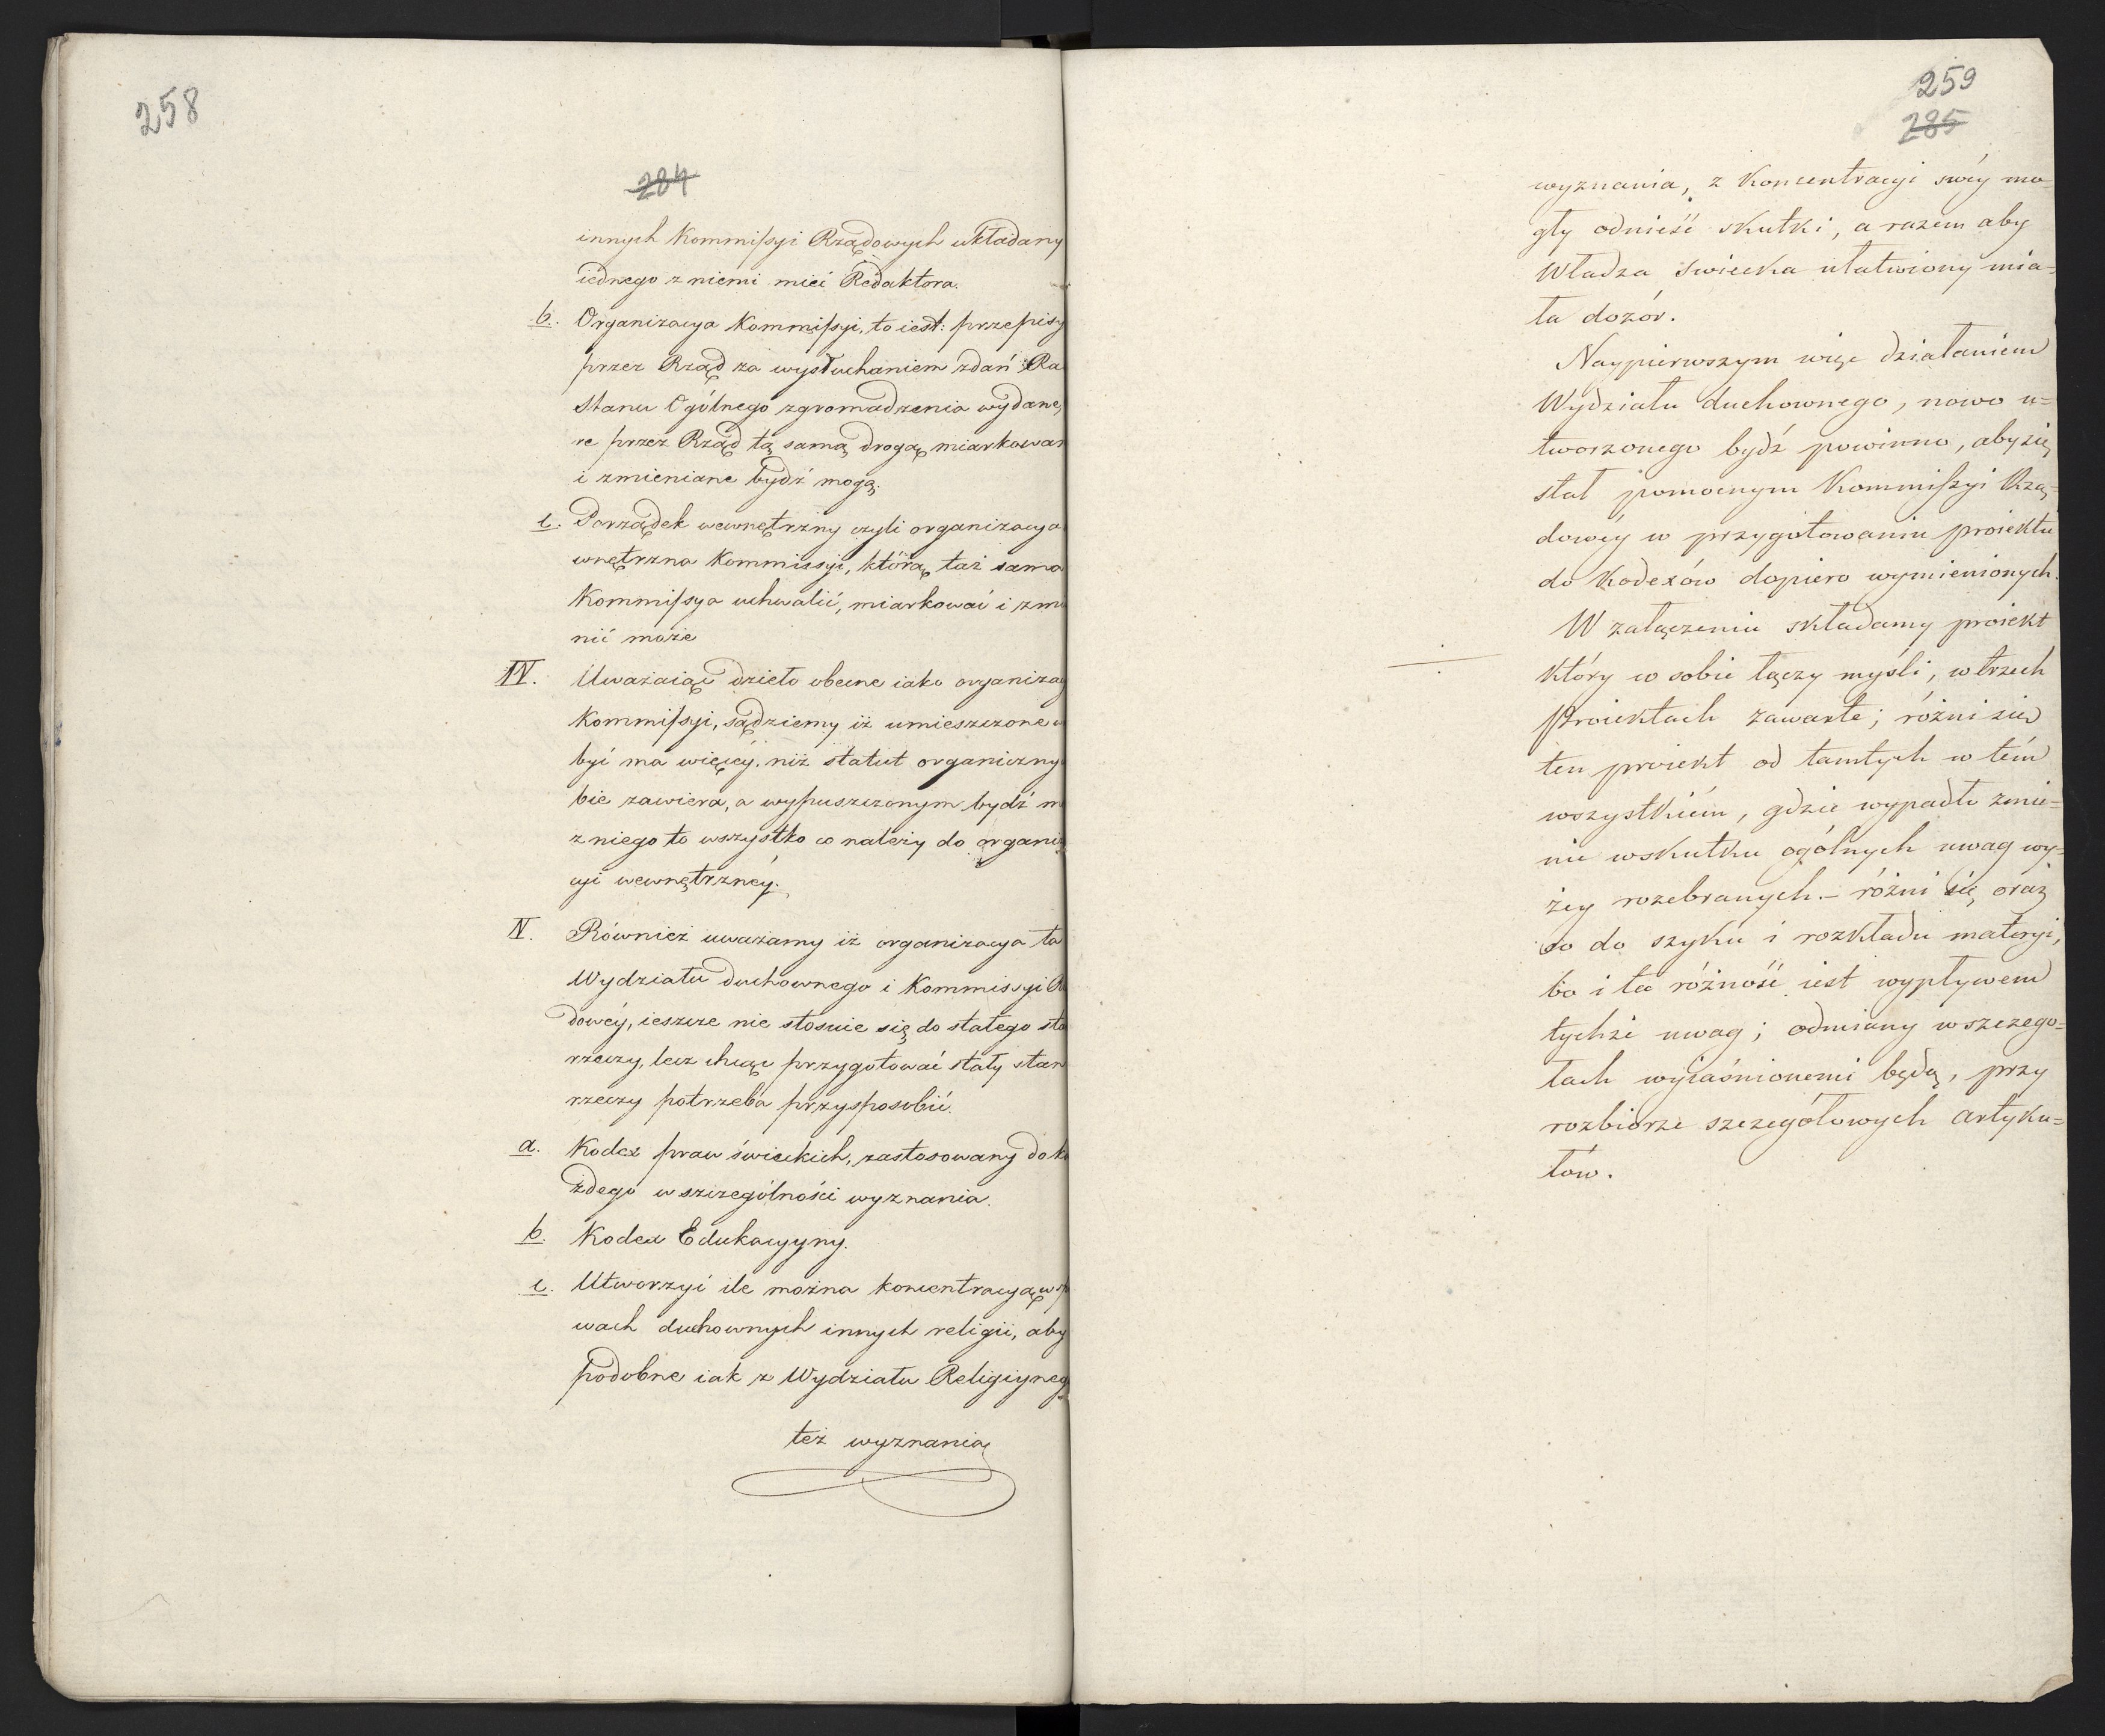 258
284
innych Kommissyi Rządowych układany
iednego z niemi mieć Redaktora.
b. Organizacya Kommissyi, to iest: przepisy
przez Rząd za wysłuchaniem zdań Ra
Stanu Ogólnego zgromadzenia wydane,
re przez Rząd tą samą drogą miarkowan
i zmieniane bydź mogą.
c. Porządek wewnętrzny czyli organizacya
wnętrzna Kommissyi, którą taż sama
Kommissya uchwalić, miarkować i zmie
nić może
IV. Uważaiąc dzieło obecne iako organizacy
Kommissyi, sądziemy iż umieszczone w
być ma więcéy, niż statut organiczny
bie zawiera, a wypuszczonym bydź m
z niego to wszystko co należy do organiza
cyi wewnętrznéy.
V. Również uważamy iż organizacya ta
Wydziału duchownego i Kommissyi Rz
dowéy, ieszcze nie stosuie się do stałego sta
rzeczy, lecz chcąc przygotować stały stan
rzeczy potrzeba przysposobić.
a. Kodex praw świeckich, zastosowany do ka
żdego w szczególności wyznania.
b. Kodex Edukacyyny.
c. Utworzyć ile można koncentracyą w sp
wach duchownych innych religii, aby
podobne iak z Wydziału Religiyneg
też wyznania,
259
285
wyznania, z Koncentracyi swéy mo=
gły odnieść skutki, a razem aby
Władza Swiecka ułatwiony mia=
ła dozór.
Naypierwszym więc działaniem
Wydziału duchownego, nowo u=
tworzonego bydź powinno, aby się
stał pomocnym Kommissyi Rzą=
dowéy w przygotowaniu proiektu
do Kodexów dopiero wymienionych.
W załączeniu składamy proiekt
który w sobie łączy myśli, w trzech
Proiektach zawarte; różni się
ten proiekt od tamtych w tém
wszystkiém, gdzie wypadło zmie=
nić wskutku ogólnych uwag wy=
żey rozebranych.- różni się oraz
co do szyku i rozkładu materyi,
bo i ta różność iest wypływem
tychże uwag; odmiany w szczegó=
łach wyiaśnionemi będą, przy
rozbiorze szczegółowych artyku=
łów.